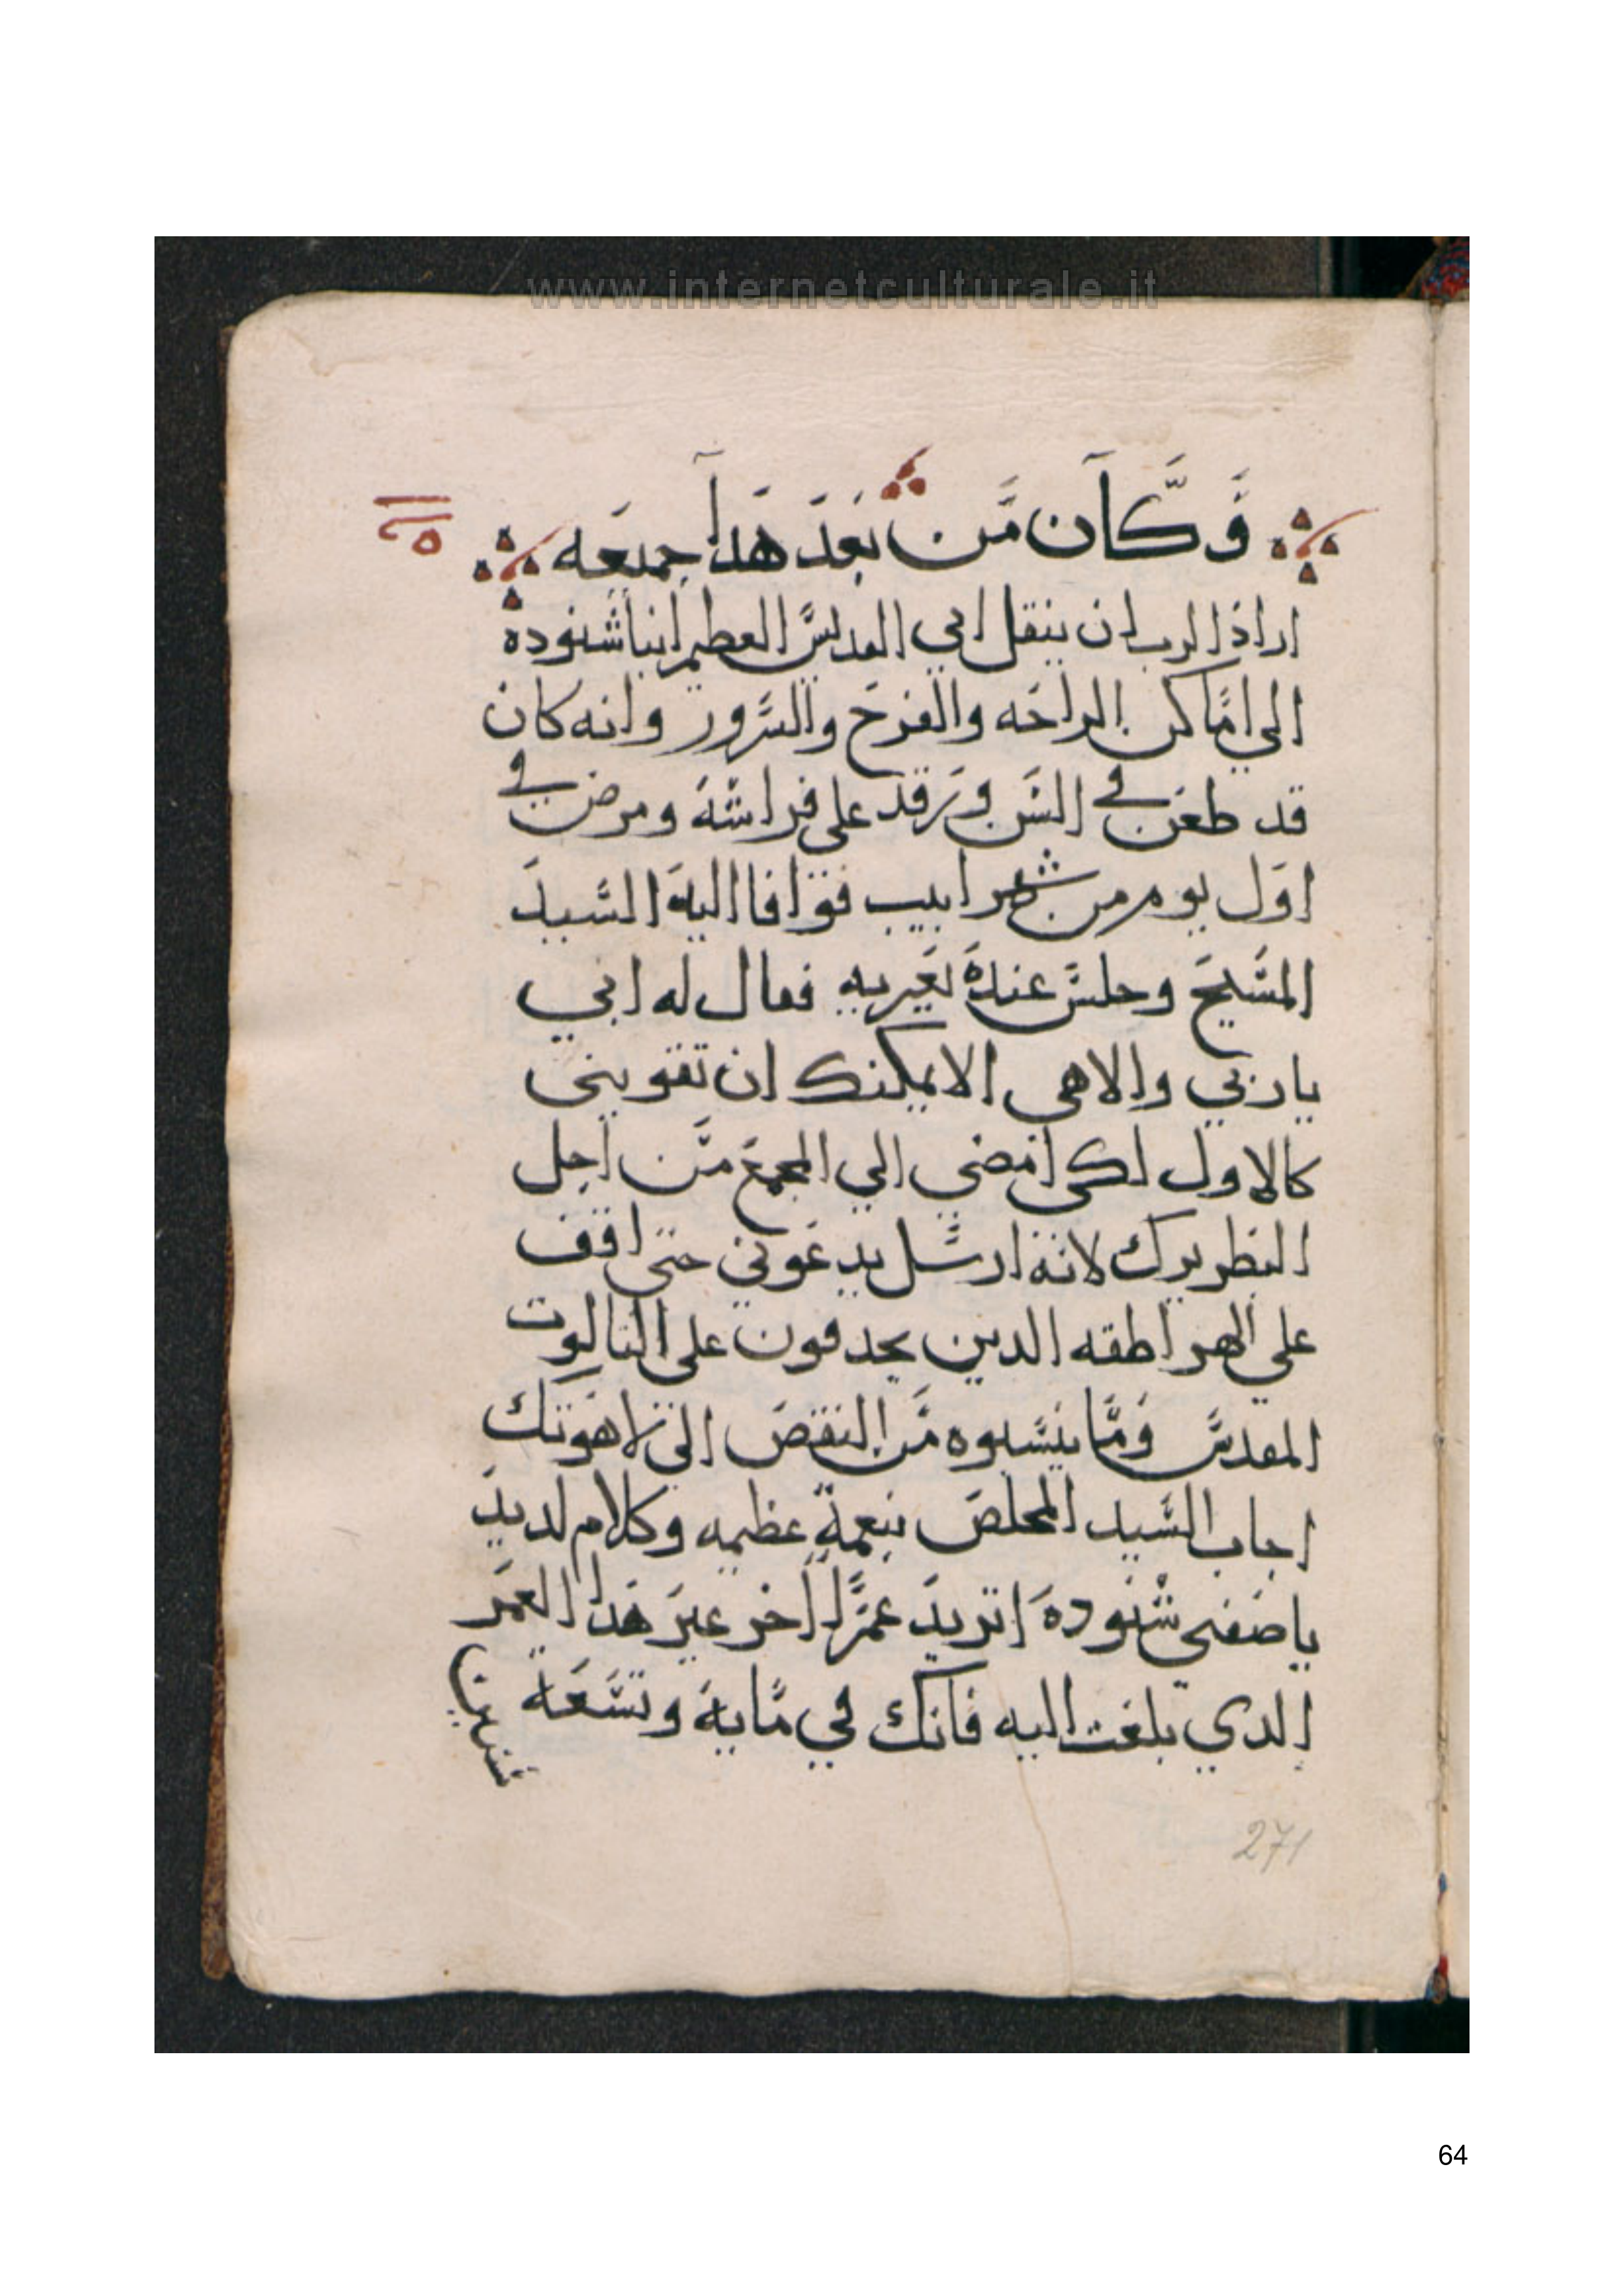 www.internetculturale.it
وكان من بعد هدا جميعه
اراذ الرب ان ينقل ابي القديس العظيم انبا شنوده
الي اماكن الراحه والفرح والسرور وانه كان
قد طعن في السن ورقد علي فراشه ومرض في
اول يوم من شهر ابيب فوافا اليه السيد
المسيح وجلس عنده يعزيه فقال له ابي
يا ربي والاهي الا يمكنك ان تقويني
كالاول لكي امضي الي المجمع من اجل
البطريرك لانه ارسل يدعوني حتي اقف
علي الهراطقه الدين يجدفون علي التالوت
المقدس وما ينسبوه من النقص الي لاهوتك
اجاب السيد المخلص بنعمة عظيمه وكلام لديد
يا صفي شنوده اتريد عمرا اخر غير هدا العمر
الدي بلغت اليه فانك في ماية وتسعة
سنين
271
64